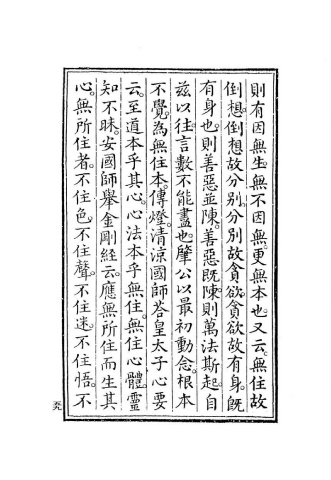 則有因無生。無不因無。更無本也。又云。無住故
倒想。倒想故分別。分別故貪欲。貪欲故有身。既
有身也。則善惡並陳。善惡既陳。則萬法斯起。自
茲以往。言數不能盡也。肇公以最初動念。根本
不覺。為無住本。傳燈。清涼國師荅皇太子心要
云。至道本乎其心。心法本乎無住。無住心體。靈
知不昧。安國師舉金剛經云。應無所住而生其
心。無所住者。不住色。不住聲。不住迷。不住悟。不